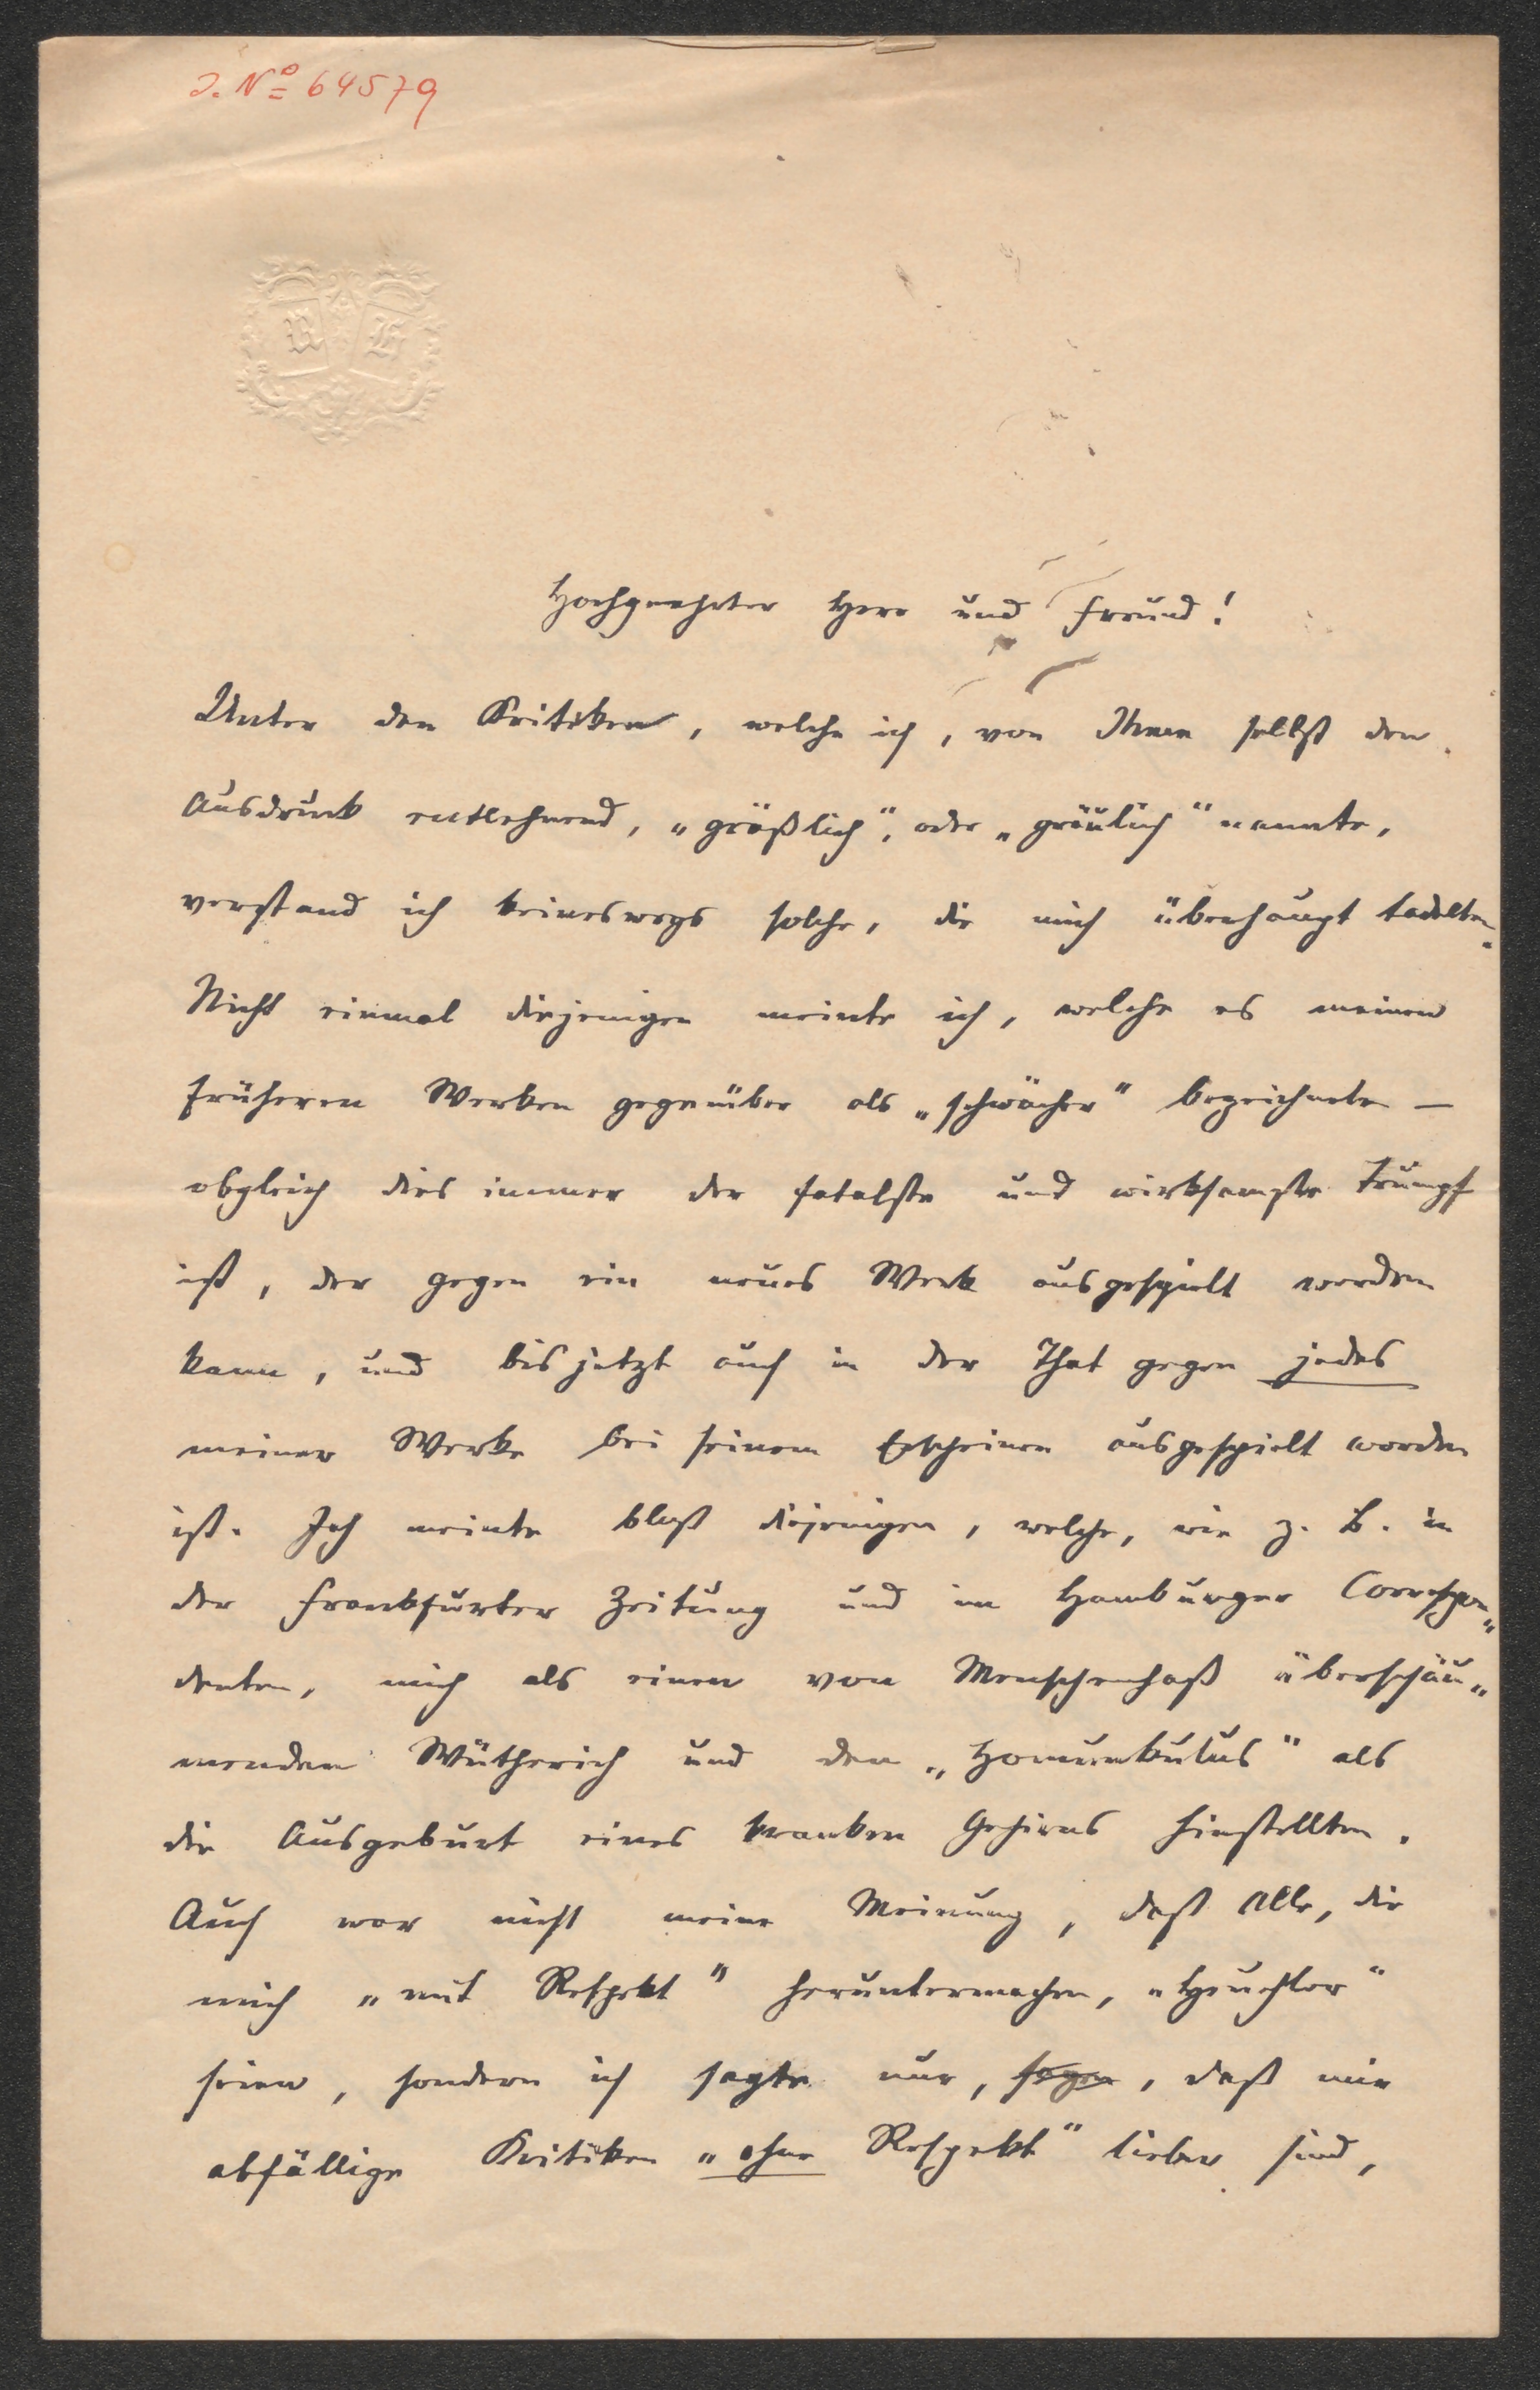 J. No 64579
R H
Hochgeehrter Herr und Freund!
Unter den Kritiken, welche ich, von Ihnen selbst den
Ausdruck entlehnend, „gräßlich“, oder „gräulich“ nannte,
verstand ich keineswegs solche, die mich überhaupt tadelten.
Nicht einmal diejenigen meinte ich, welche es meinen
früheren Werken gegenüber als „schwächer“ bezeichneten —
obgleich dies immer der fatalste und wirksamste Trumpf
ist, der gegen ein neues Werk ausgespielt werden
kann, und bis jetzt auch in der That gegen jedes
meiner Werke bei seinem Erscheinen ausgespielt worden
ist. Ich meinte bloß diejenigen, welche, wie z. B. in
der Frankfurter Zeitung und im Hamburger Correspon„
denten, mich als einen von Menschenhaß überschäu„
menden Wütherich und den „Homunkulus“ als
die Ausgeburt eines kranken Gehirns hinstellten.
Auch war nicht meine Meinung, daß Alle, die
mich „mit Respekt“ heruntermachen, „Heuchler“
seien, sondern ich sagte nur, sagen, daß mir
abfällige Kritiken „ohne Respekt“ lieber sind,